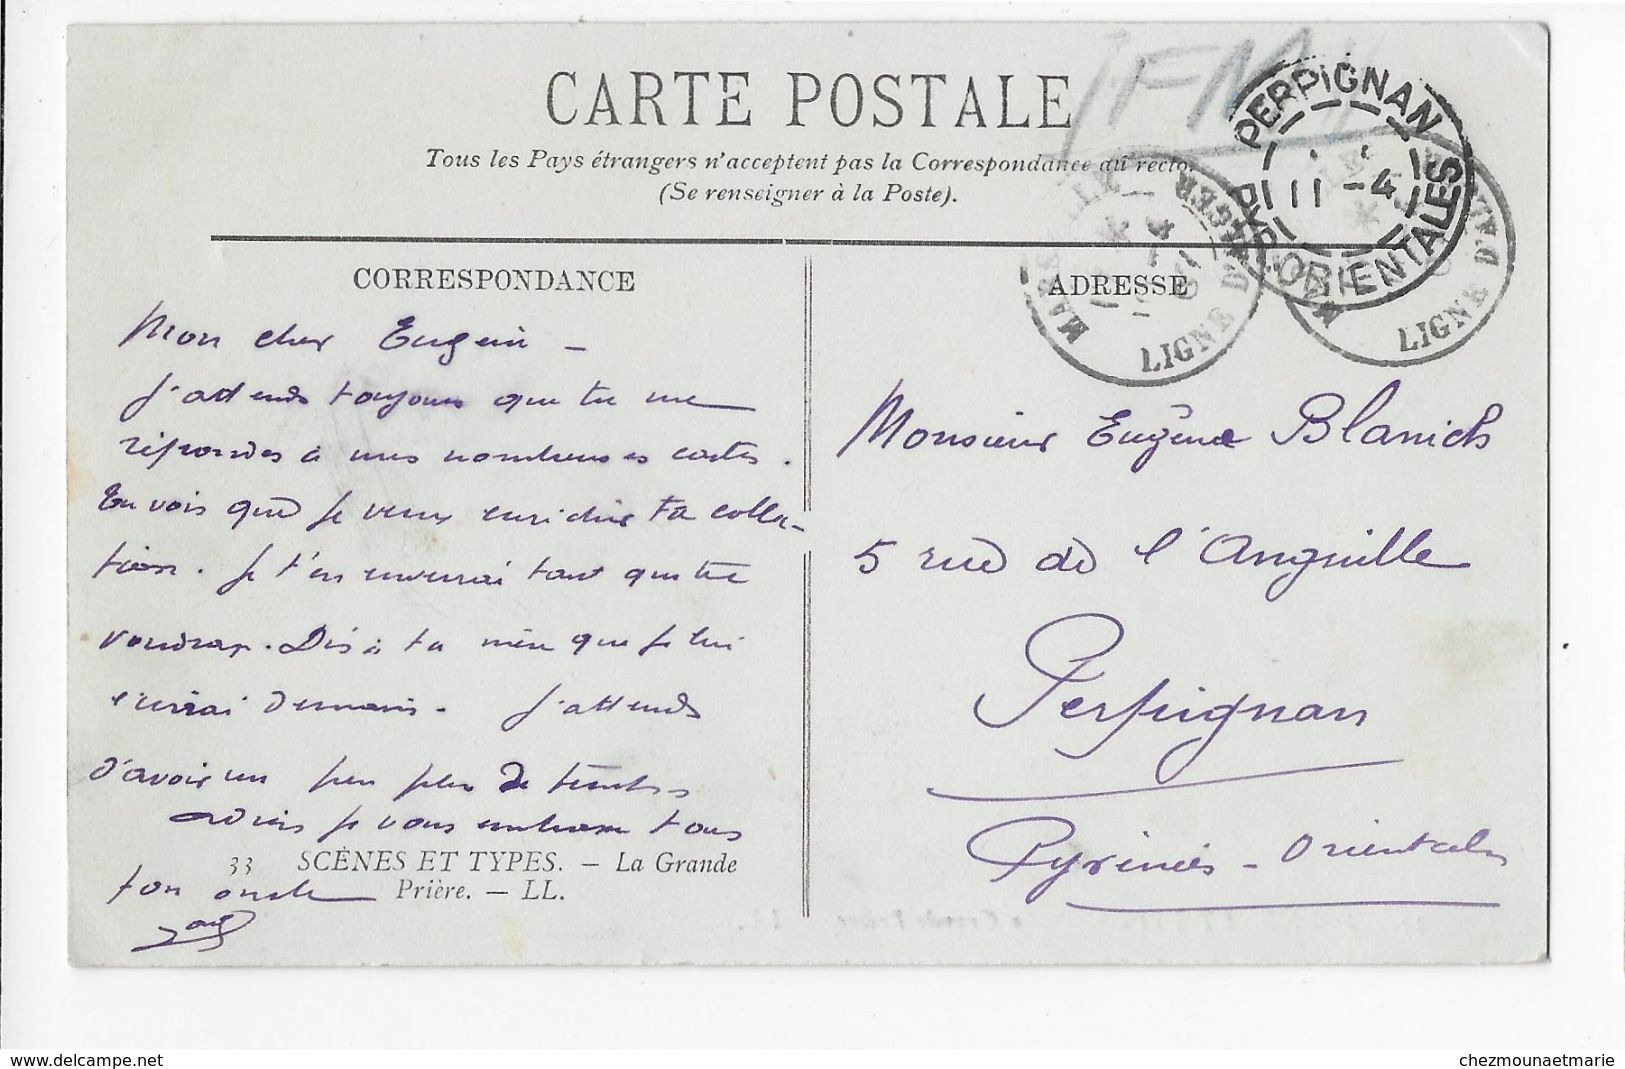 CARTE POSTALE
Tous les Pays étrangers n'acceptent pas la Correspondance au recto.
(Se renseigner à la Poste).
FM
PERPIGNAN
11 -4
PYR. ORIENTALES
MARSEILLE
LIGNE D'ALGER
LIGNE D'AL
CORRESPONDANCE
ADRESSE
Mon cher Eugène -
J'attends toujours que tu me
répondes à mes nombreuses cartes.
Tu vois que je veux enrichir ta collec-
tion. Je t'en enverrai tant que tu
voudras. Dis à ta mère que je lui
écrirai demain. J'attends
d'avoir un peu plus de temps
adieu je vous embrasse tous
ton oncle
Monsieur Eugène Blanich
5 rue de l'Anguille
Perpignan
Pyrénées-Orientales
33 SCÈNES ET TYPES. — La Grande
Prière. — LL.
www.delcampe.net
chezmounaetmarie